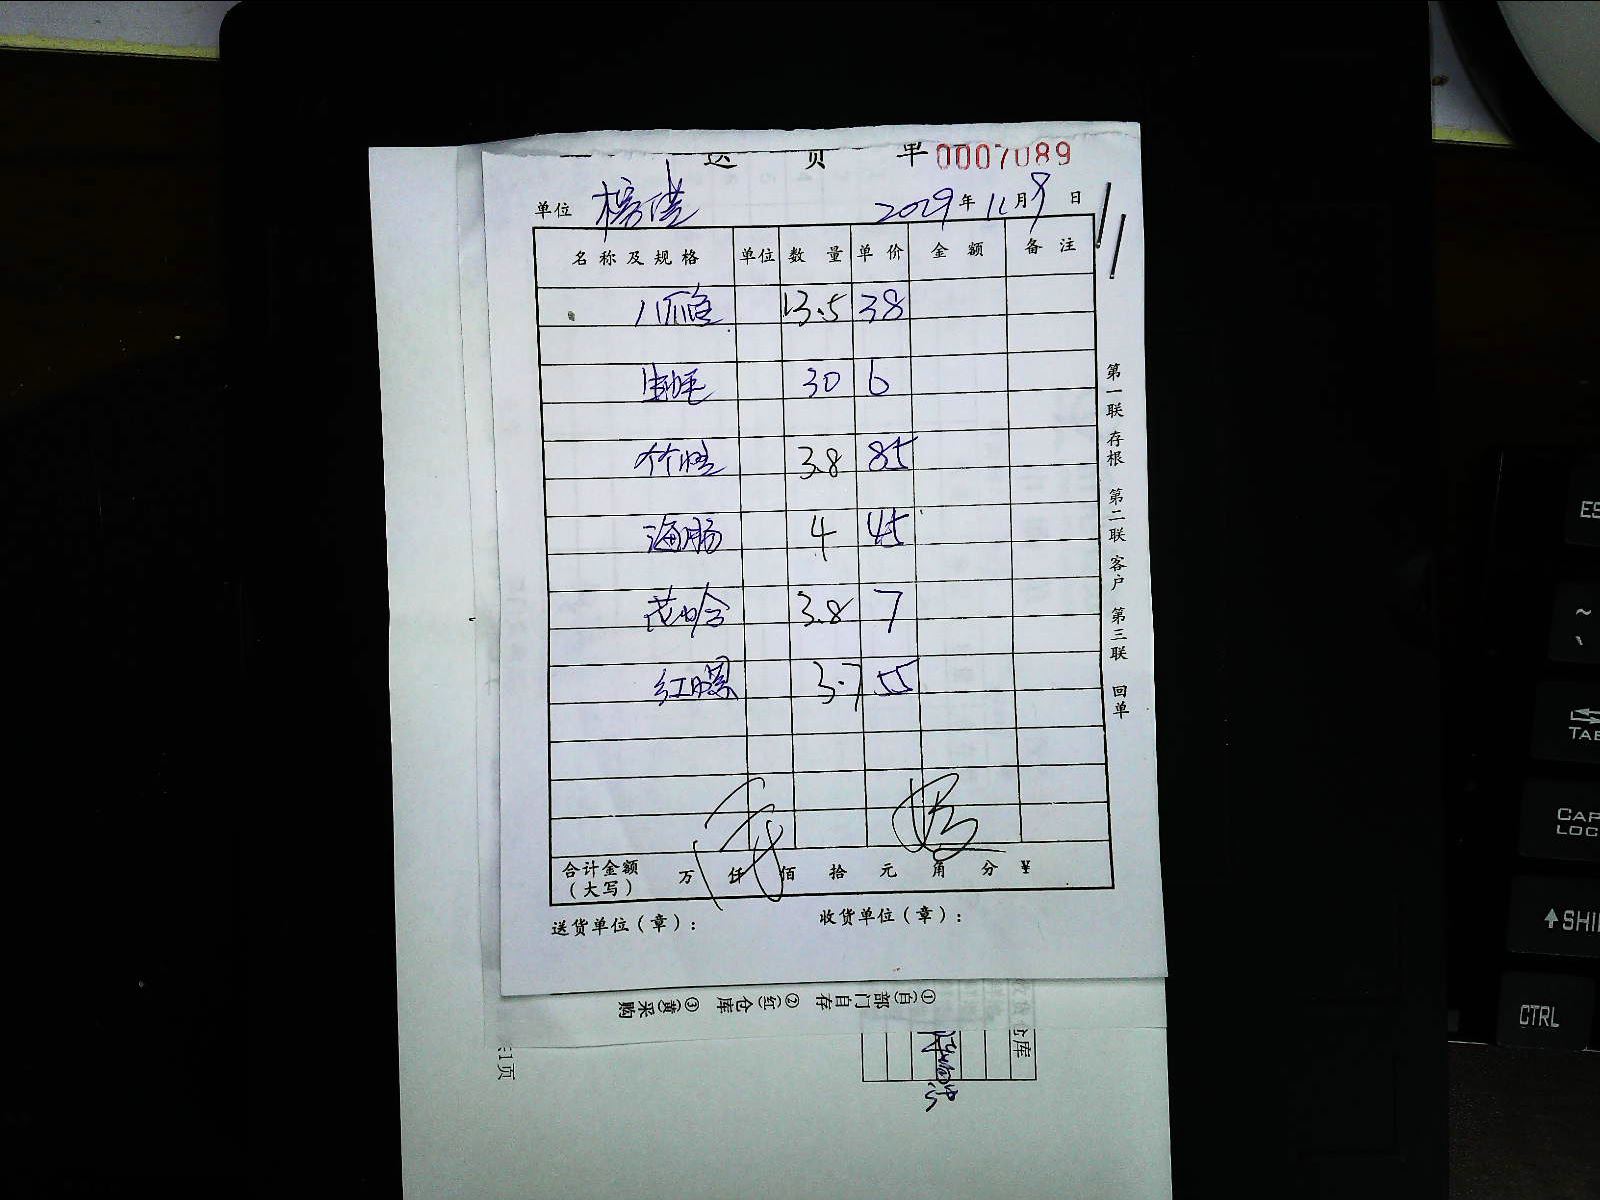 送 货 单 0007089
单位
2019年11月9日
名称及规格 单位 数量 单价 金额 备注
八爪鱼 13.5 38
生蚝 30 6
竹蛏 3.8 85
海肠 4 45
花蛤 3.8 7
红螺 3.7 55
合计金额(大写) 万 仟 佰 拾 元 角 分 ¥
送货单位(章): 收货单位(章):
第一联 存根 第二联 客户 第三联 回单
①(白)部门自存 ②(红)仓库 ③(黄)采购
仓库
ES
~
TAB
CAP
LOC
SHI
CTRL